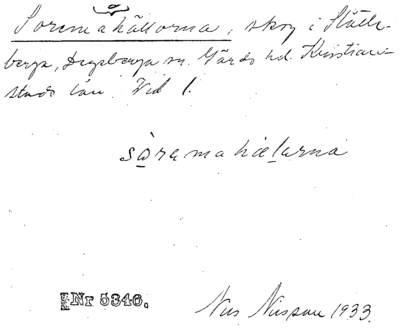 Soremahällorna, skog i Slätte-
berga, Degeberga sn. Gärds hd. Kristian-
stads län. Vid 1.
sǫremahæl̨arna
Nr 5346.
Nils Nilsson 1933.